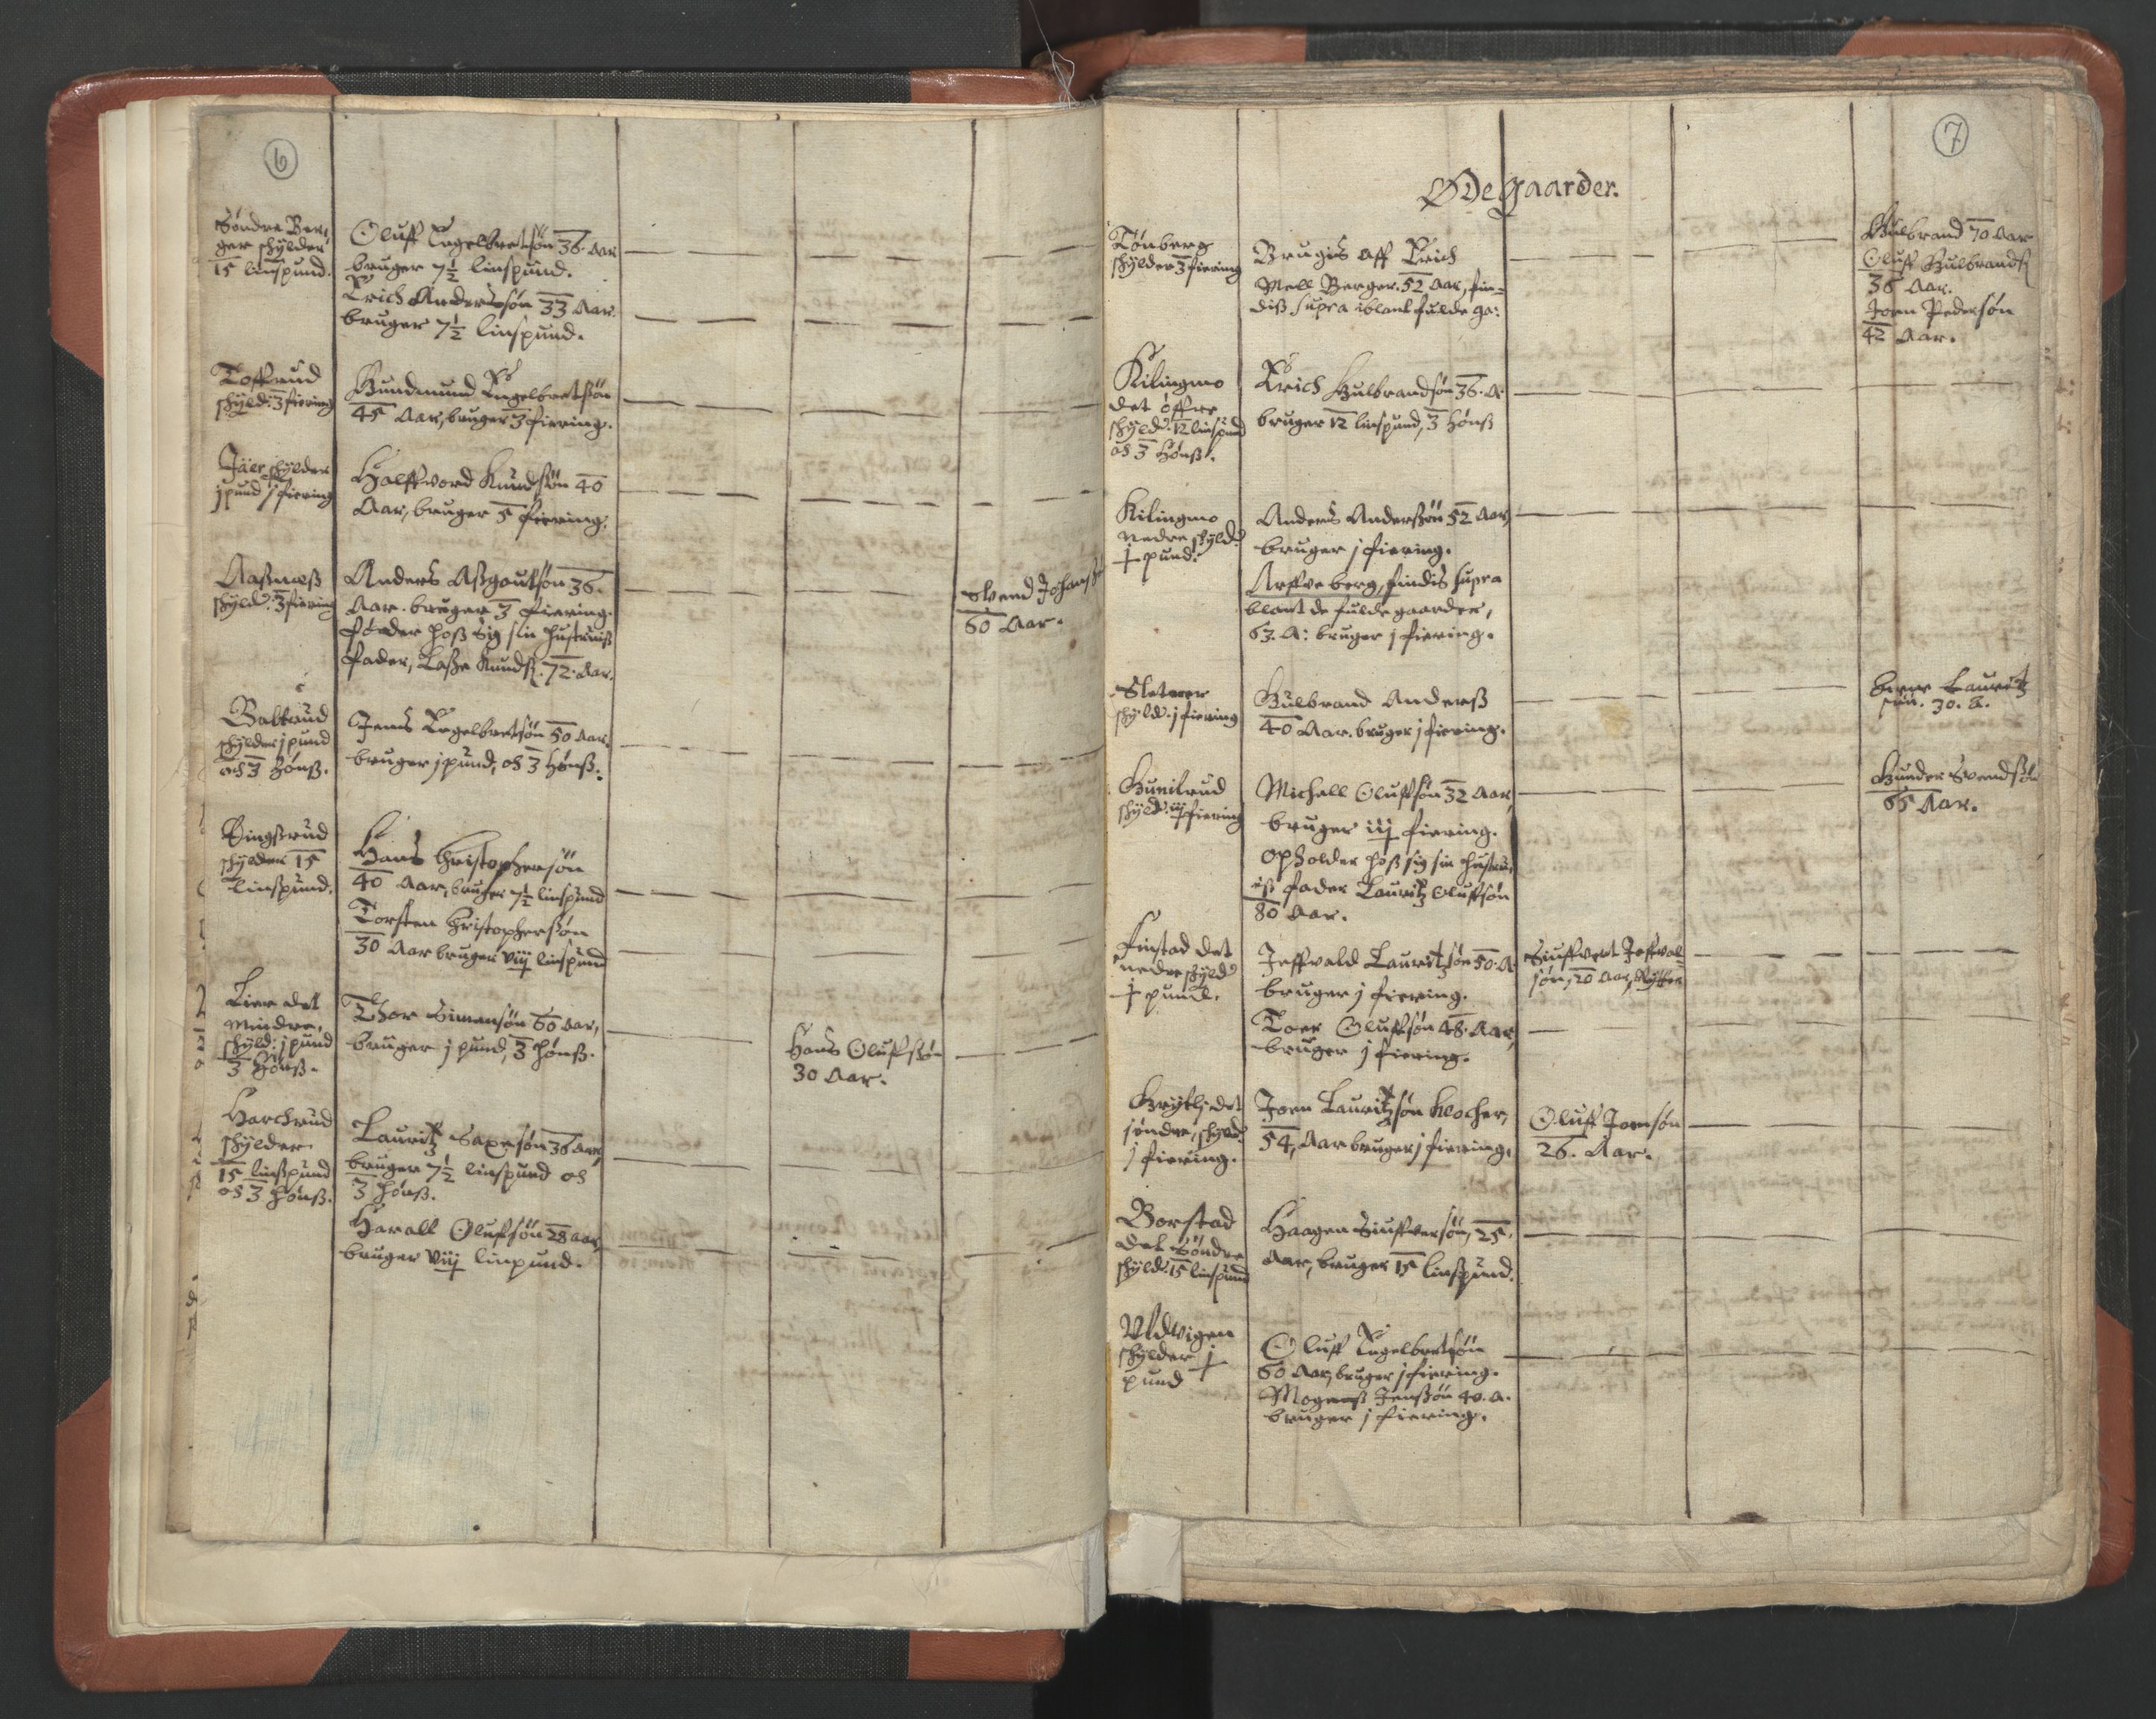 6
Søndre Ber,
ger schylder
15 linspund.
Oluff Engelbretsøn 36. Aar
bruger 7½ linspund.
Erich Andersøn 33 Aar.
bruger 7½ linspund.
Toffrud
schyld: 3 fiering
Gundmund Engelbretsøn
45 Aar, bruger 3 fiering.
Jäer schylder
j pund j fiering
Halffvord Knudsøn 40
Aar, bruger 5 fiering.
Aaßnæß
schyld: 3 fiering
Anders Aßgoutsøn 36.
Aar. bruger 3 fiering.
føeder hoß sig sin hustruiß
fader, Laße Knudß. 72. Aar.
Svend Johanß
60 Aar.
schylder j pund
och 3 hønß.
Jens Engelbretsøn 50 Aar.
bruger j pund, och 3 hønß.
Ringßrud
schylder 15
linspund.
Hans Christophersøn
40 Aar, bruger 7½ linspund
Torsten Christophersøn
30 Aar bruger viij linspund
Lier det
mindre,
schyld: j pund
3 hønß.
Thor Simensøn 60 Aar,
bruger j pund, 3 hønß.
Hans Oluffsøn
30 Aar.
Harchrud
schylder
15 linspund
och 3 hønß.
Lauritz Saxesøn 36 Aar,
bruger 7½ linspund och
3 hønß.
Haralt Oluffsøn 28 Aar,
bruger viij linpund.
7
Øde gaarder.
Tønberg
schylder 3 fiering
Brugis aff Erich
Mell Berger. 52 Aar, fin-
diß supra iblant fulde ga:
Gulbrand 70 Aar
Oluff Gulbrandß
36 Aar.
Joen Pedersøn
42 Aar.
Kilingmo
det øffre
schyld: 12 linspund
och 3 hønß.
Erich Gulbrandsøn 36. A.
bruger 12 linspund, 3 hønß
Kilingmo
nedre schyld:
½ pund.
Anders Anderßøn 52 Aar,
bruger j fiering.
Arffve berg, findis supra
blant de fulde gaarder,
63. A: bruger j fiering.
Sletner
schyld: j fiering
Gulbrand Anderß
40 Aar. bruger j fiering.
Lauritz
søn. 30. A.
Gunilrud
schyld: iij fiering
Michell Oluffsøn 32 Aar,
bruger iij fiering.
opholder hoß sig sin hustru,
iß fader Lauritz Oluffsøn
80 Aar.
Gunder Svendsøn
65 Aar.
Finstad det
nedre schyld:
½ pund.
Jeffvald Lauritzsøn 50. A.
bruger j fiering.
Siuffvert Jeffval-
søn, 20 Aar, Rytter
Toer Oluffsøn 48. Aar,
bruger j fiering.
det
søndre, schyld:
j fiering.
Joen Lauritzsøn klocher,
54, Aar bruger j fiering,
Oluff Joensøn
26. Aar.
Borstad
det søndre
schyld: 15 linspund
Haagen Siuffversøn, 25.
Aar, bruger 15 linspund.
Uldvigen
schylder ½
pund
Oluff Engelbretsøn
60 Aar, bruger j fiering.
Mogenß Jenßøn 40. A.
bruger j fiering.